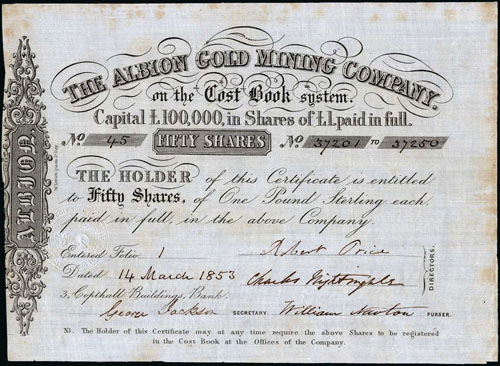 THE ALBION GOLD MINING COMPANY.
on the Cost Book system.
Capital £100,000, in Shares of £1. paid in full.
No 45 FIFTY SHARES No 37201 TO 37250
THE HOLDER of this Certificate is entitled
to Fifty Shares, of One Pound Sterling each
paid in full, in the above Company.
Entered Folio 1 Robert Price
Dated 14 March 1853 Charles Nightingale
DIRECTORS.
3, Copthall Buildings, Bank.
George Jackson SECRETARY. William Naxton PURSER.
NB. The Holder of this Certificate may at any time require the above Shares to be registered
in the Cost Book at the Offices of the Company.
ALBION